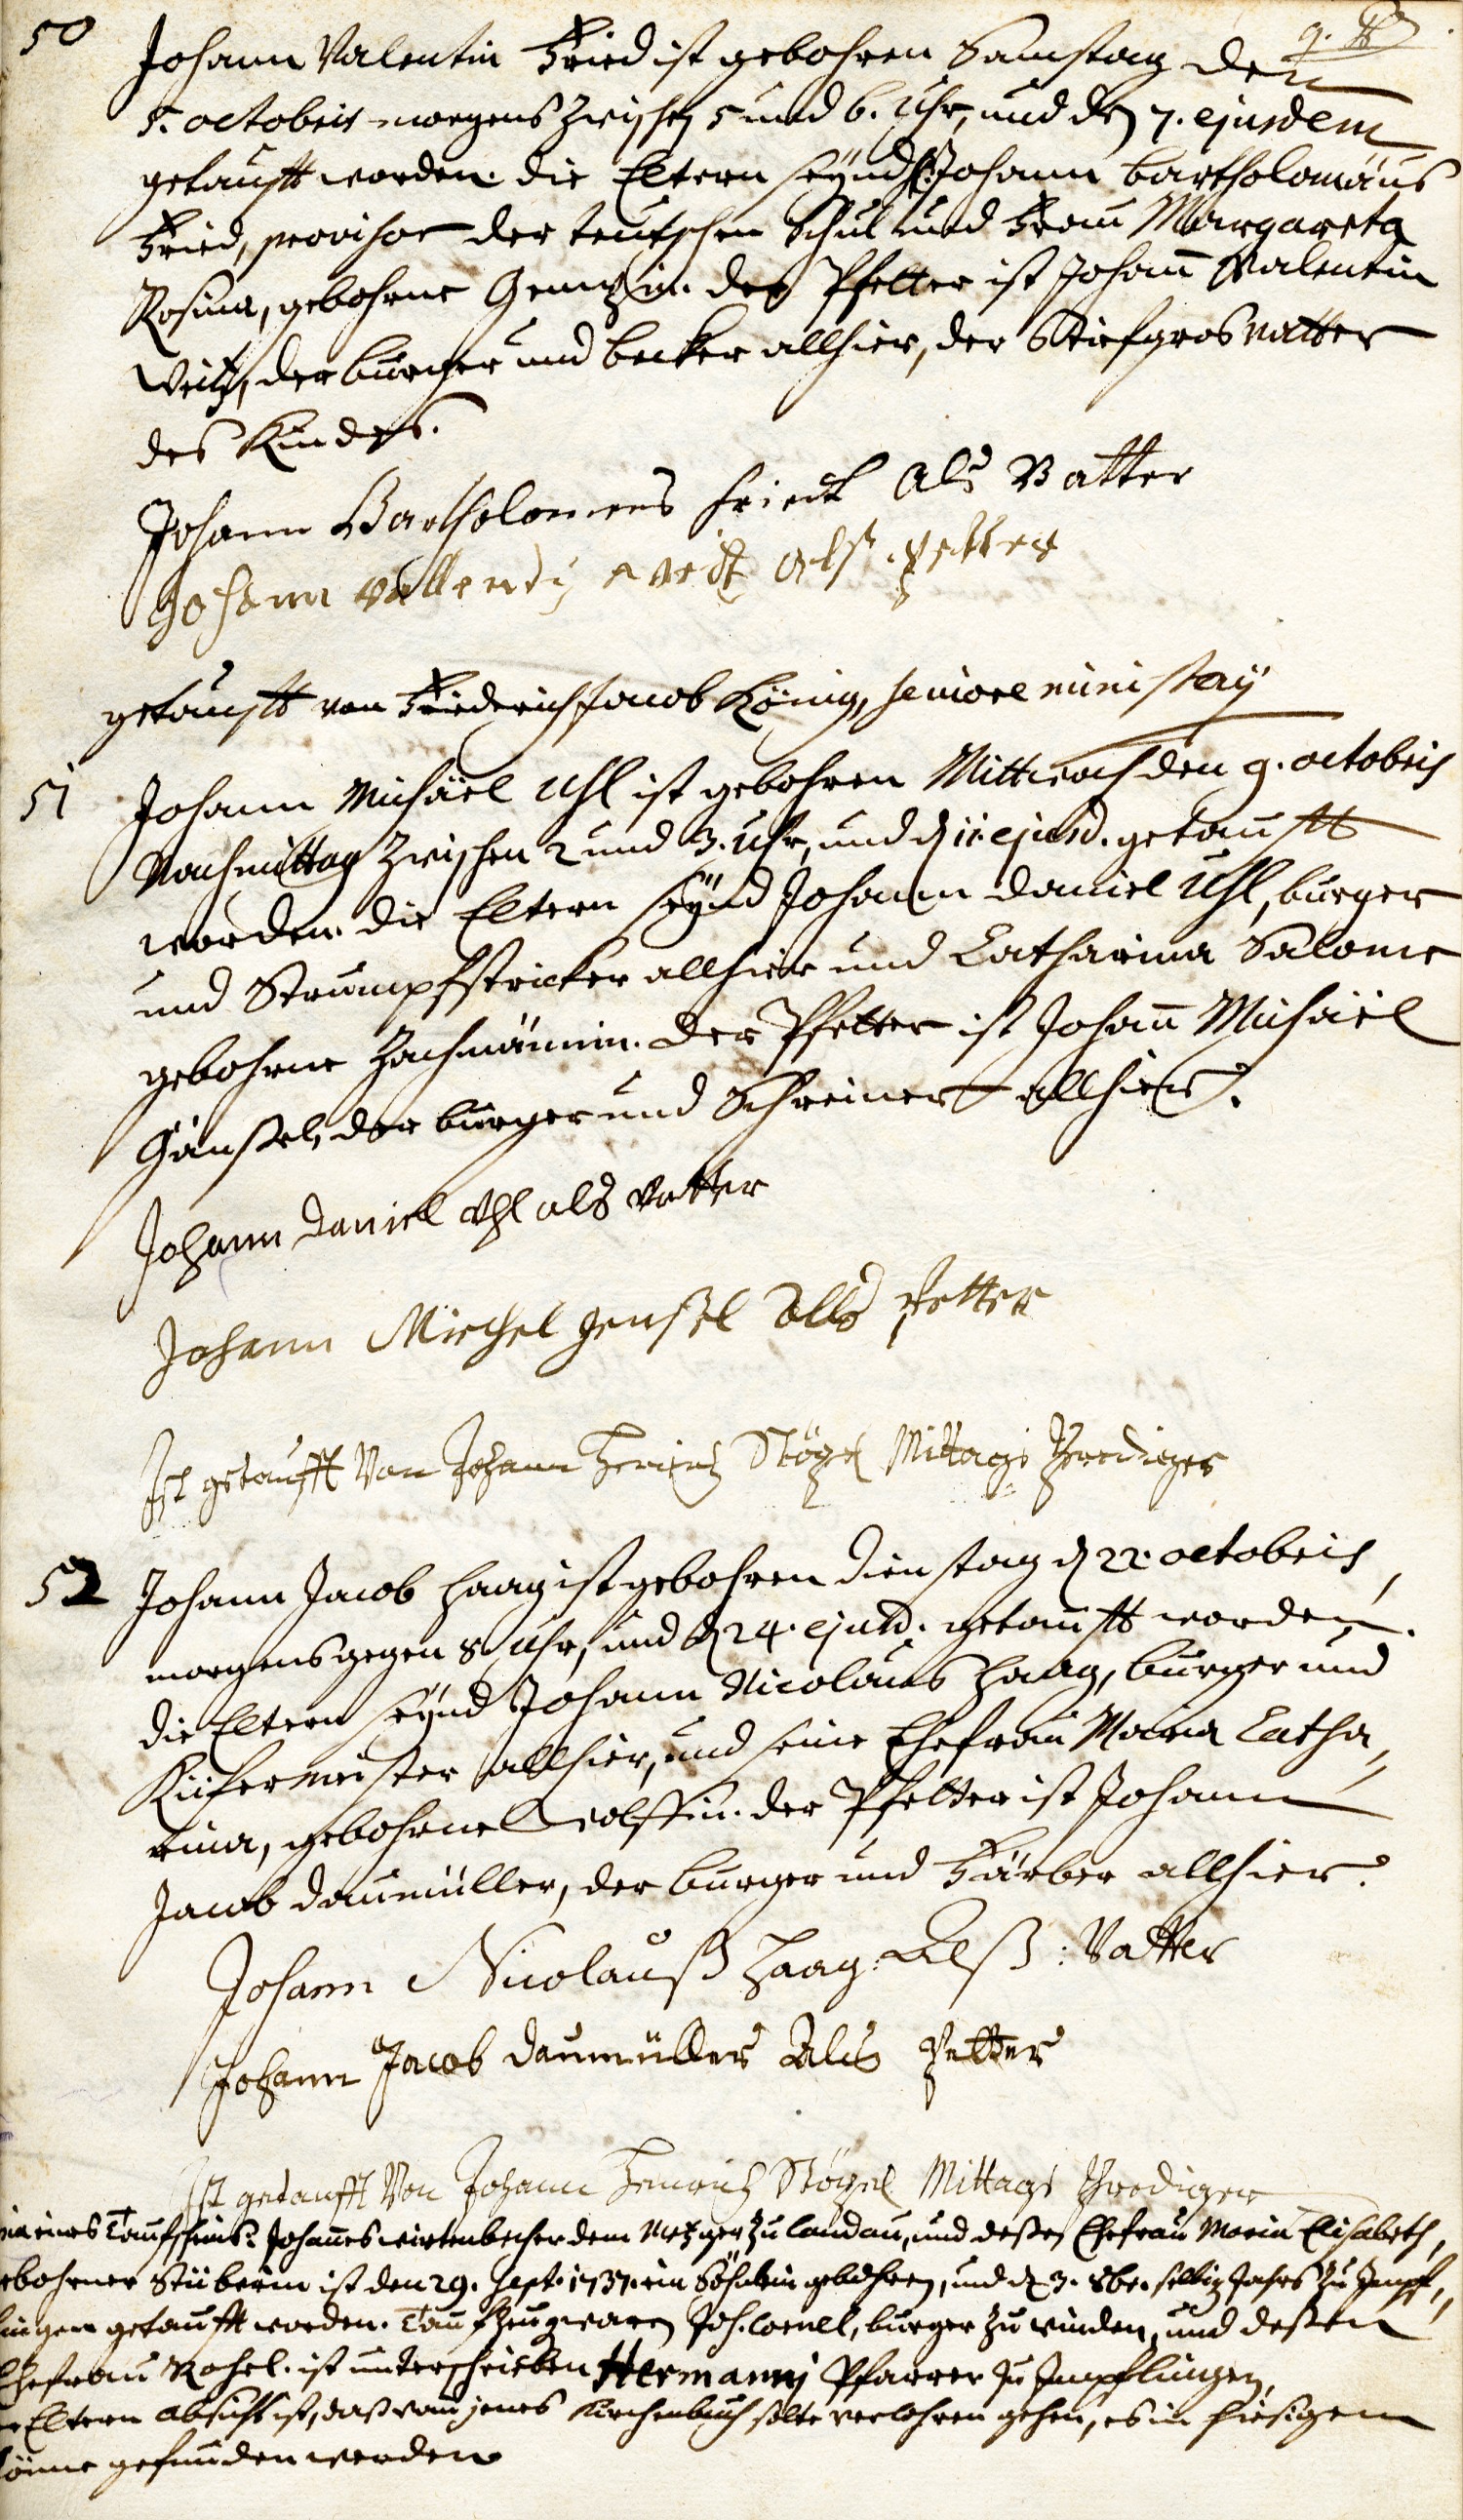 50 Johann Valentin Fried ist gebohren Samstag den
5. octobris morgens zwischen 5 und 6. Uhr, und den 7. ejusdem
getaufft worden. die Eltern seynd Johann Bartholomäus
Fried, provisor der teutschen Schul und Frau Margareta
Rosina, gebohrne der Pfetter ist Johann Valentin
Veith, der burger und becker allhier, der Stiefgrosvatter
des Kindes.
Johann Bartholomeus Friedt als Vatter
Johann als Petter
getaufft von Friederich Jacob König, seniore ministerij
51 Johann Michäel Uhl ist gebohren Mittwoch den 9. octobris
Nachmittag zwischen 2 und 3. Uhr, und d 11. ejusd. getaufft
worden. die Eltern seynd Johann Daniel Uhl, burger
und Strumpfstricker allhier und Catharina Salome
gebohrne Hachmännin. der Pfetter ist Johann Michäel
Gänßel, der burger und Schreiner allhier.
Johann Daniel Uhl als Vatter
Johann Michel Genßel alls Petter
Ist getaufft Von Johann Henrich Stözel Mittags Prediger
52 Johann Jacob Haag ist gebohren Dienstag d 22. octobris,
morgens gegen 8 Uhr, und d 24. ejusd. getaufft worden.
die Eltern seynd Johann Nicolaus Haag, burger und
Kiefermeister allhier, und seine Ehefrau Maria Catha,,
rina, gebohrne Wolffin. der Pfetter ist Johann
Jacob Daumüller, der burger und Färber allhier.
Johann Nicolauß Haag. Alß: Vatter
Johann Jacob Daumüller Als Petter
Ist getaufft Von Johann Henrich Stözel Mittags Prediger
eines Taufscheins: Johannes Wirtenbecher dem Metzger zu Landau, und deßen Ehefrau Maria Elisabeth,
gebohrner Stüberin ist den 29. Sept. 1737. ein Söhnlein gebohren, und d 3. 8br. selbig Jahrs zu Impf,,
lingen getaufft worden. Taufzeug waren Joh. Cornel, burger zu winden, und deßen
Ehefrau Rahel. ist unterschrieben Hermanni Pfarrer zu Impflingen,
Eltern absicht ist, daß wann jenes Kirchenbuch solte verlohren gehen, es in hiesigem
könne gefunden werden